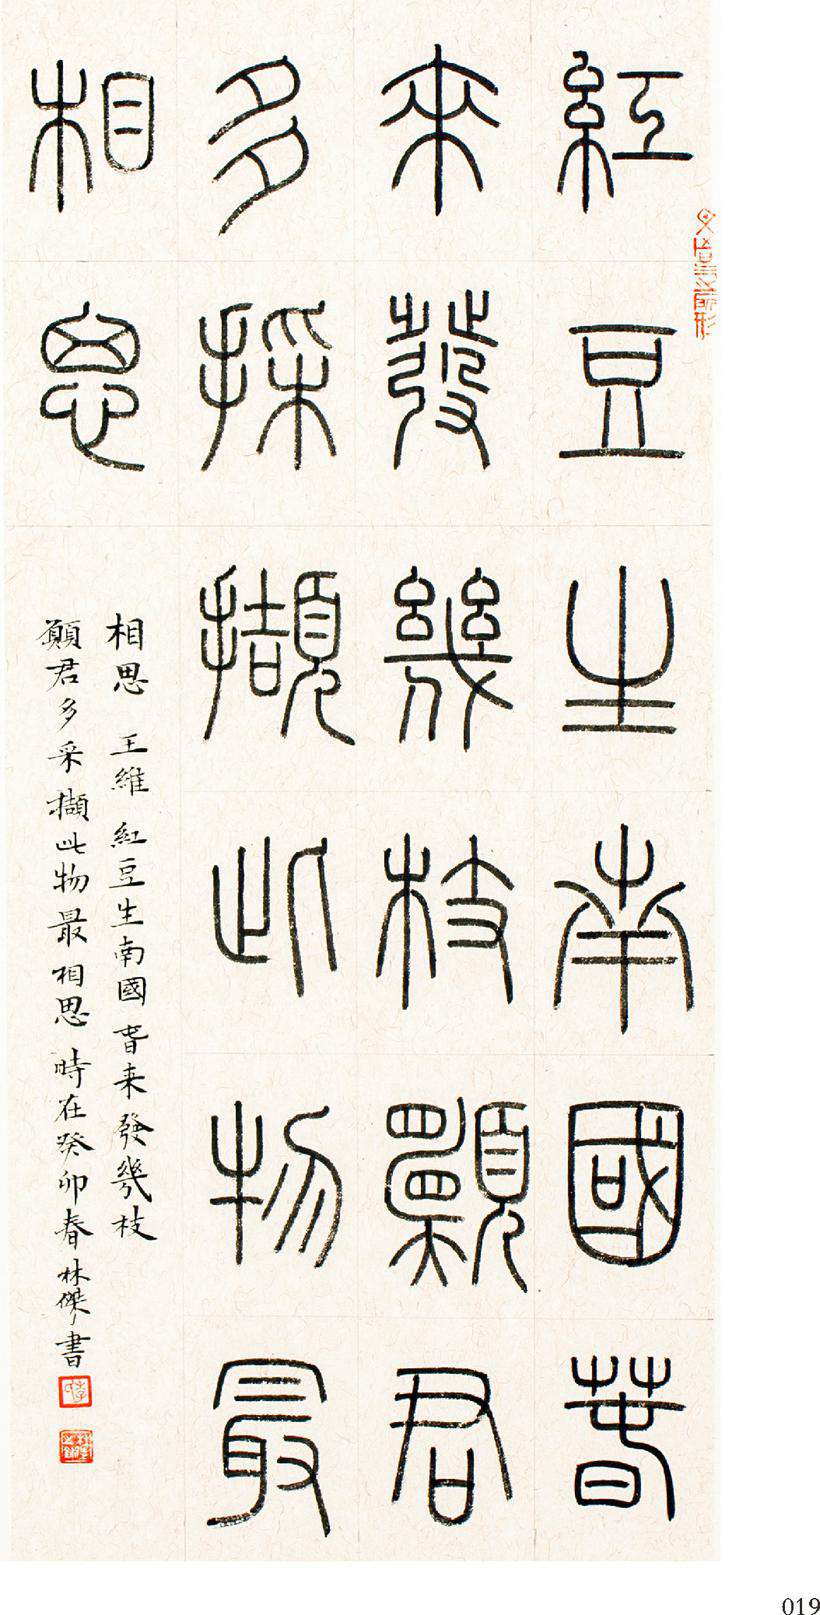 紅豆生南國春
來發幾枝願君
多採擷此物最
相思
相思 王維 紅豆生南國春來發幾枝
願君多采擷此物最相思 時在癸卯春林傑書
019